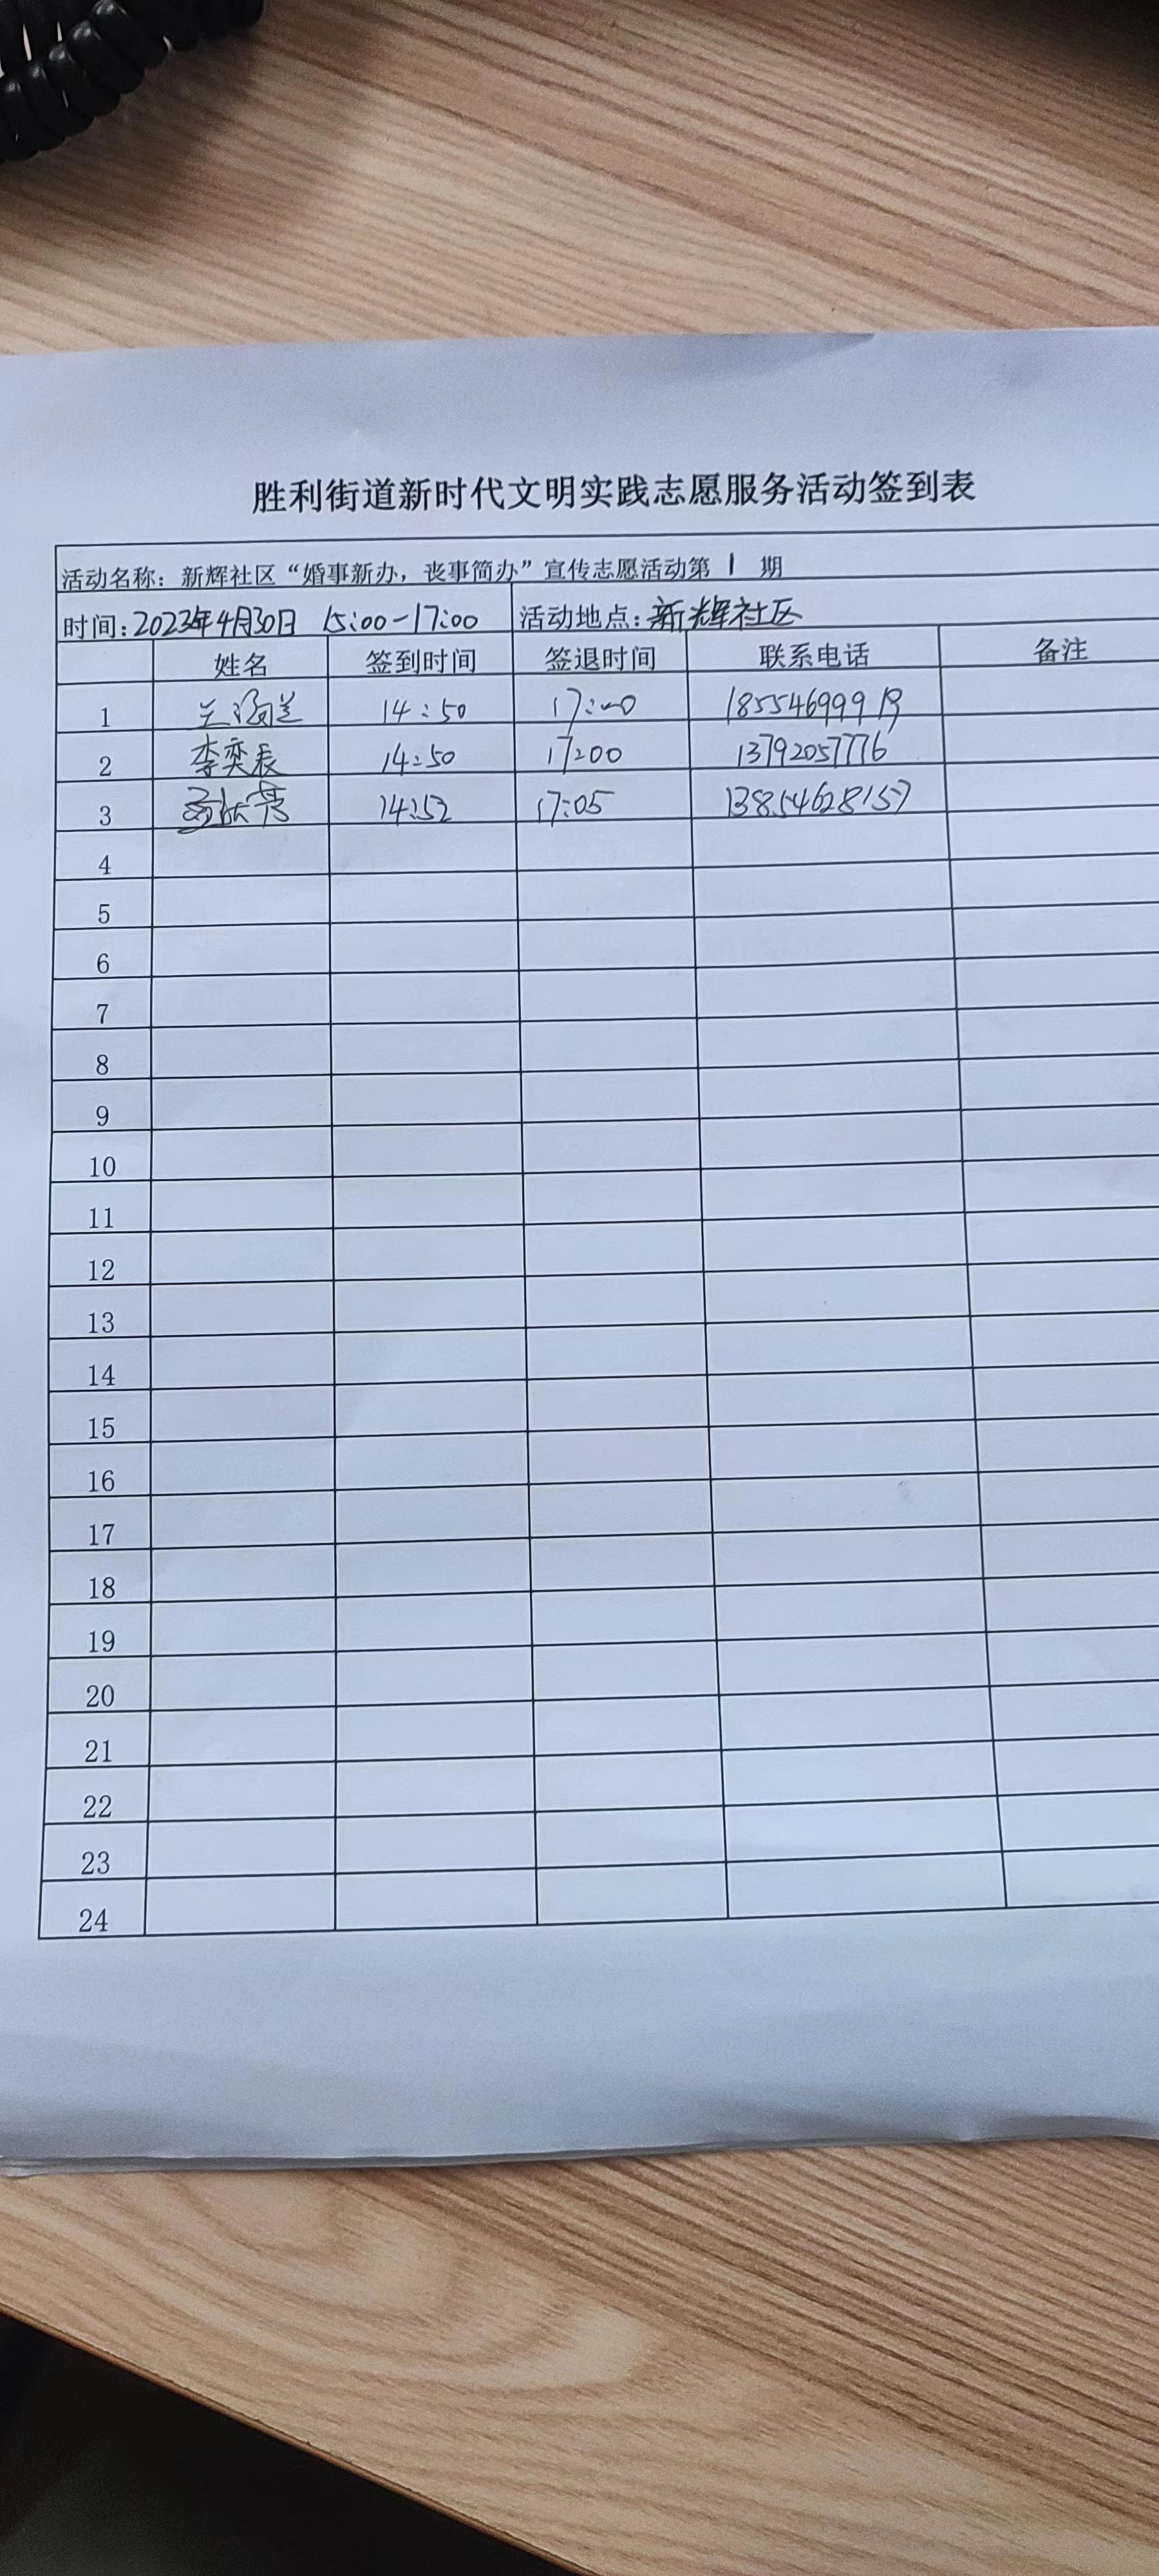 胜利街道新时代文明实践志愿服务活动签到表
活动名称：新辉社区“婚事新办，丧事简办”宣传志愿活动第 1 期
时间：2023年4月30日 15:00-17:00 活动地点：新辉社区
姓名 签到时间 签退时间 联系电话 备注
1 14:50 17:00 185546999
2 李奕辰 14:50 17:00 13792057776
3 14:52 17:05 13854628157
4
5
6
7
8
9
10
11
12
13
14
15
16
17
18
19
20
21
22
23
24